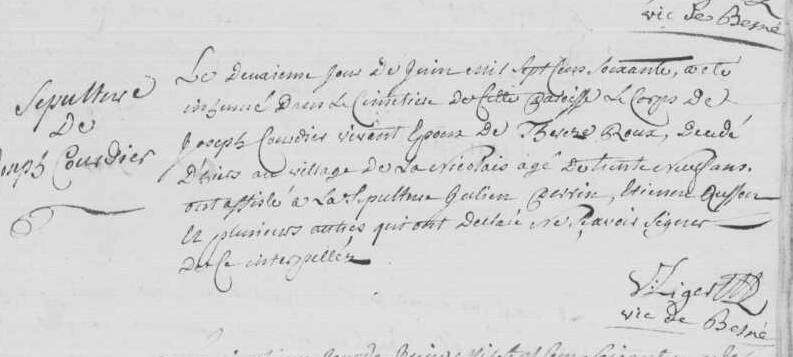 vic de Besné
Sepulture
De
Joseph Courdier
Le Deuxieme Jour De Juin mil Sept Cens Soixante, a eté
inhumé Dans Le Cimetiere De Cette Paroisse Le Corps De
Joseph Courdier vivant Epoux De Therese Roux, Decedé
D'hier au village de La Nicolais agé De trente neuf ans.
ont assisté à La Sepulture Julien Perrin, Etienne
et plusieurs autres qui ont Declaré ne sçavoir Signer
de ce interpellés
V: Liger
vic de Besné